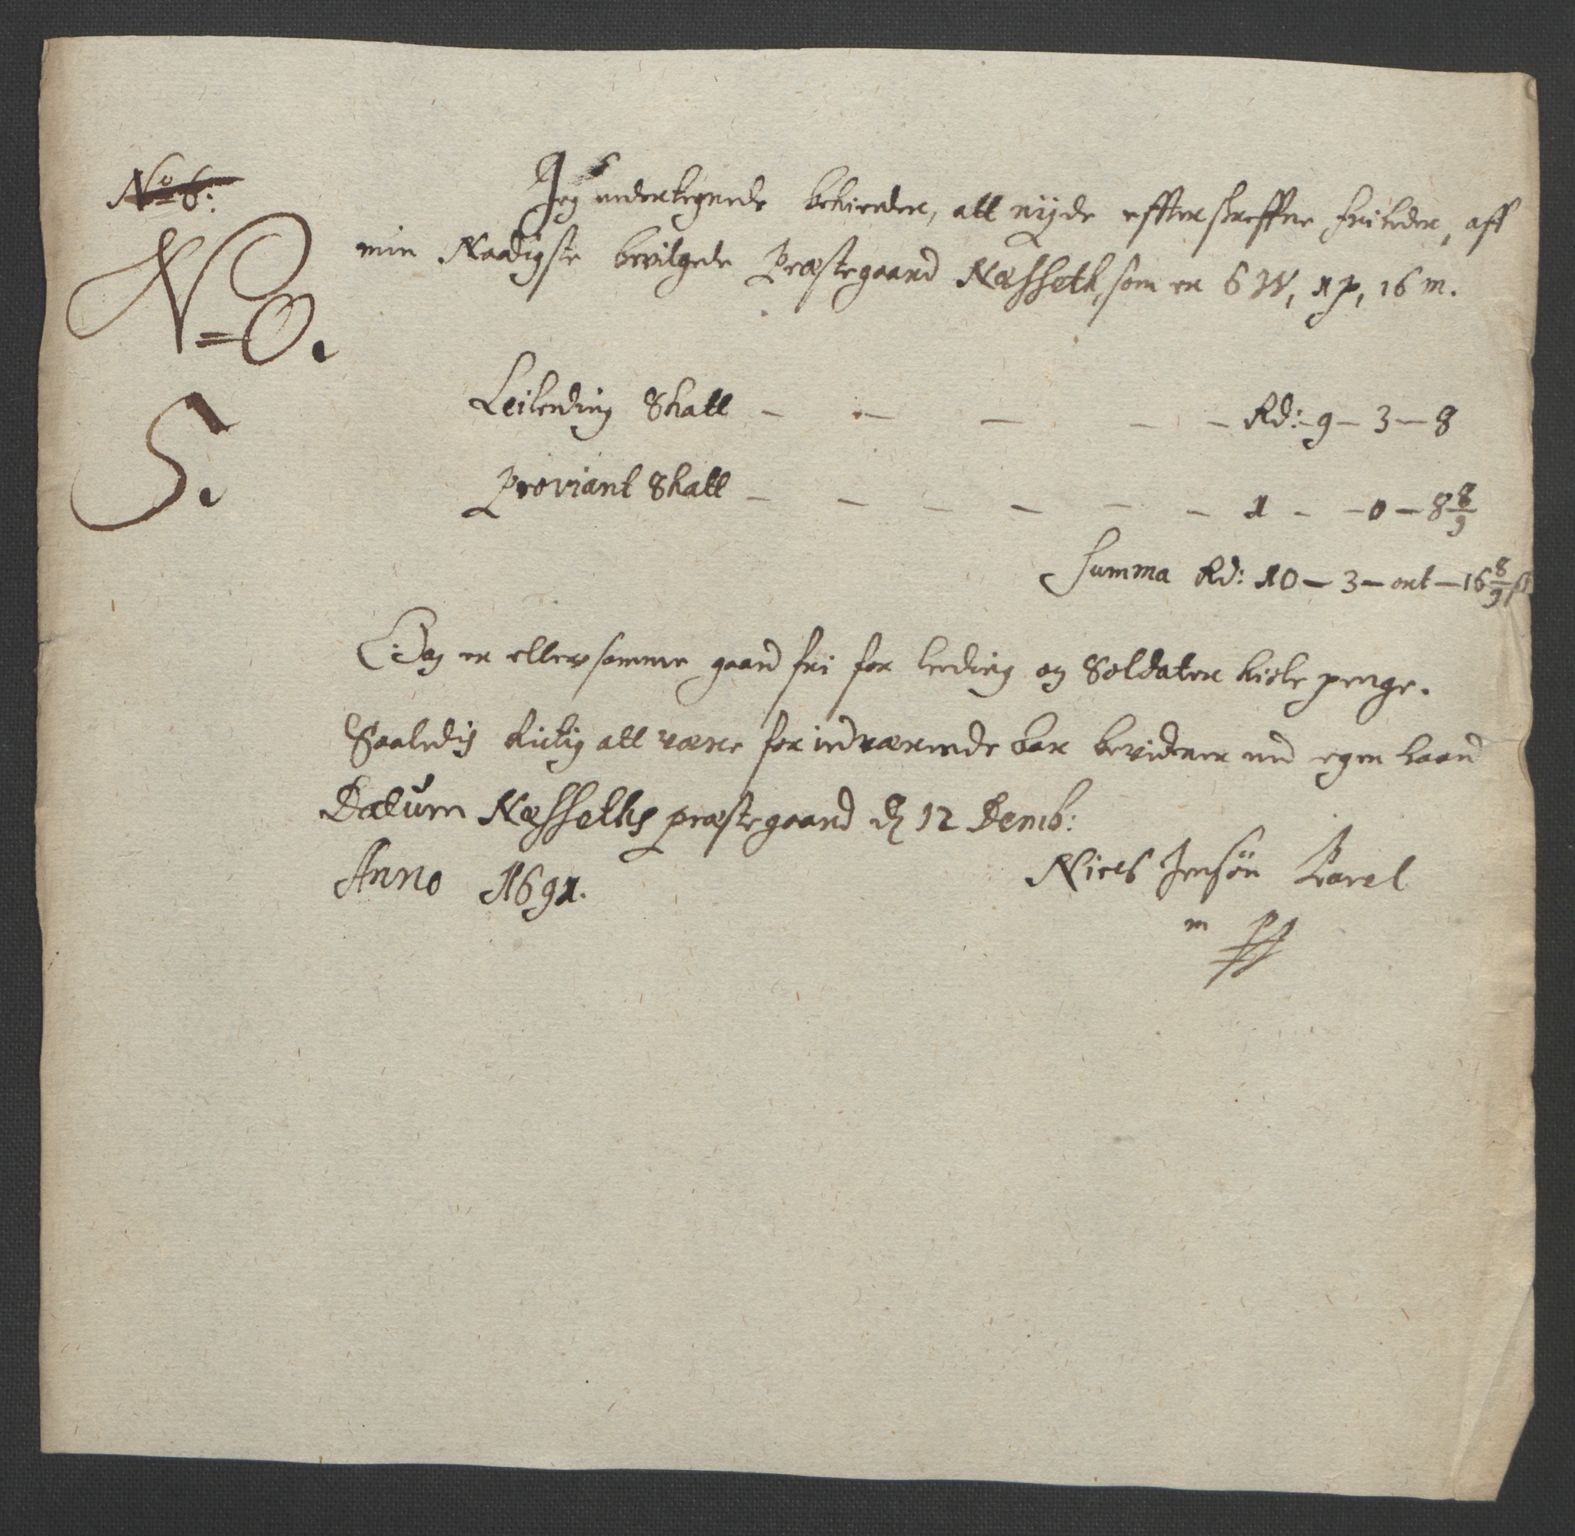 No 6:
No.
5.
Jeg undertegnede bekiender, att nyde effterskreffne friheder, aff
min Naadigste bevilgede Præstegaard Næsseth, som er 6 W, 1 p, 16 m.
Leilending Skatt - - - - - Rd: 9 - 3 - 8
Proviant Skatt - - - - - - 1 - - 0 - 8 8/9
Summa Rd: 10 - 3 - ort - 16 8/9 ß
Og er ellers samme gaard fri for leding og Soldater
penge.
Saaledis Rictig att være for indværende aar bevidner med egen haand
Datum Næsseths præstegaard d 12 Decemb:
Anno 1691.
Niels Jensøn
m pp